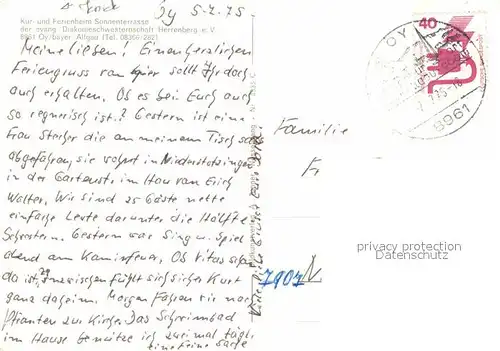 Oy 5.7.75
Kur- und Ferienheim Sonnenterrasse
der evang. Diakonieschwesternschaft Herrenberg e. V.
8961 Oy/bayer. Allgäu (Tel. 08366-282)
Meine Lieben! Einen herzlichen
Feriengruss von hier sollt Ihr doch
auch erhalten. Ob es bei Euch auch
so regnerisch ist? Gestern ist eine
Frau die an meinem Tisch saß
abgefahren, sie wohnt in Niederstotzingen
in der Gartenstr. im Haus von Erich
Walter. Wir sind 25 Gäste nette
einfache Leute darunter die Hälfte
Schwestern. Gestern war Sing u. Spiel
abend am Kaminfeuer. Ob Vitus schon
da ist, inzwischen fühlt sich sicher Kurt
ganz daheim. Morgen fahren wir nach
Pfronten zur Kirche. Das Schwimmbad
im Hause benütze ich zweimal tägl.
eine feine Sache
Familie
F
7907 N
40
OY
8961
privacy protection
Datenschutz